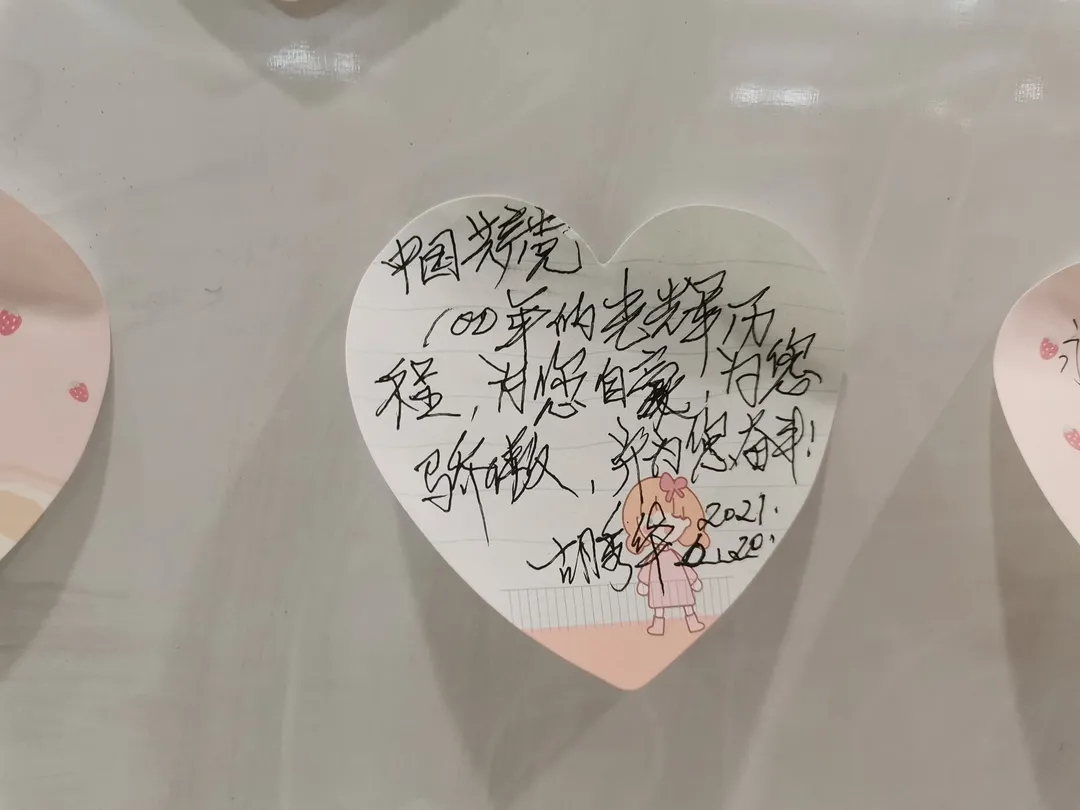 中国共产党
100年的光辉历
程,为您自豪,为您
骄傲,并为您奋斗!
胡秀华 2021.
6.20.